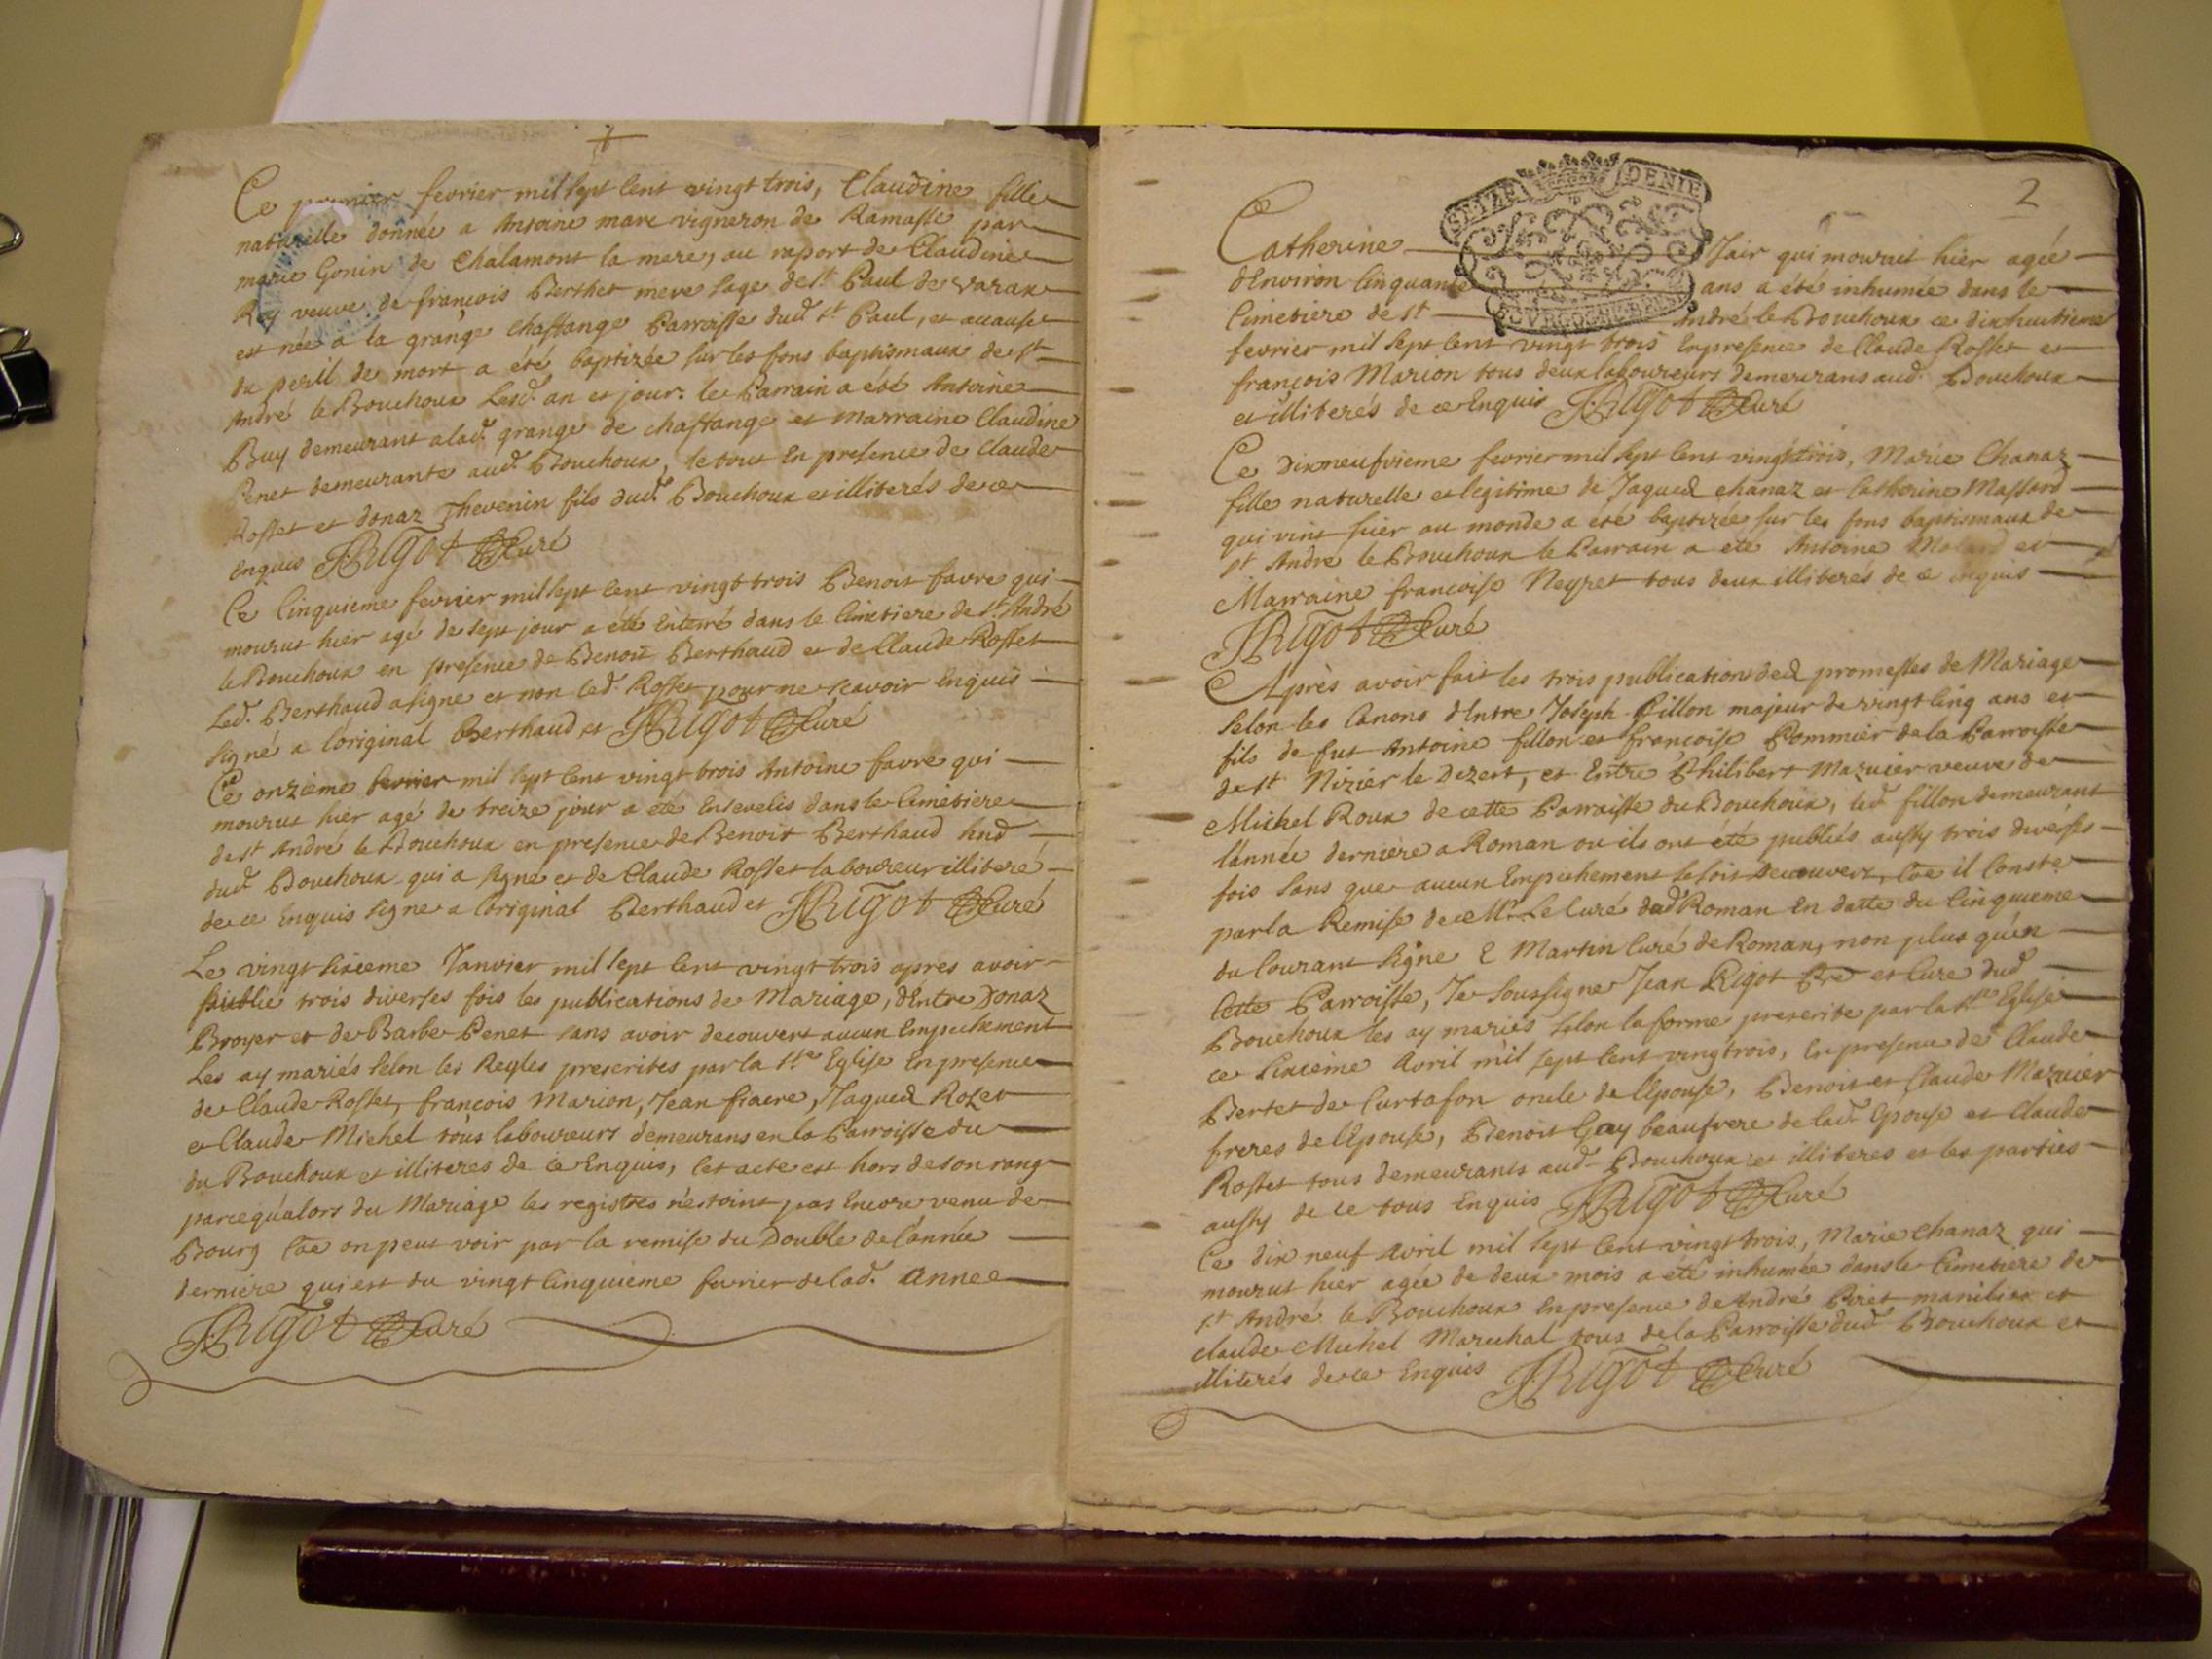 Ce premier fevrier mil sept cent vingt trois, Claudine fille
naturelle donnée a Antoine mare vigneron de Ramasse par
marie Gonin de Chalamont la mere, au raport de Claudine
Rey veuve de françois Berthet mere sage de st Paul de varax
est née a la grange chassange Parroisse dud. st Paul, et acause
du peril de mort a été baptizée sur les fons baptismaux de st
André le Bouchoux Lesd. an et jour. le Parrain a été Antoine
Buy demeurant a lad. grange de chassange et marraine Claudine
Penet demeurante aud. Bouchoux, le tout En presence de Claude
Rosset et donaz Thevenin fils dud. Bouchoux et illiterés de ce
enquis JRigot Curé
Ce Cinquieme fevrier mil sept cent vingt trois Benoit favre qui
mourut hier agé de sept jour a été Enterré dans le Cimetiere de st André
le Bouchoux en presence de Benoit Berthaud et de Claude Rosset
Led. Berthaud a signe et non led. Rosset pour ne scavoir Enquis
signé a l'original Berthaud et JRigot Curé
Ce onzieme fevrier mil sept cent vingt trois Antoine favre qui
mourut hier agé de treize jour a été Ensevelis dans le Cimetiere
de st André le Bouchoux en presence de Benoit Berthaud
dud. Bouchoux qui a signe et de Claude Rosset laboureur illiteré
de ce Enquis signe a l'original Berthaud et JRigot Curé
Le vingt sixieme Janvier mil sept cent vingt trois apres avoir
publié trois diverses fois les publications de Mariage, d'Entre Donaz
Broyer et de Barbe Penet sans avoir decouvert aucun Empechement
Les ay mariés selon les Regles prescrites par la ste Eglise En presence
de Claude Rosset, françois Marion, Jean fiacre, Jaques Rozet
et Claude Michel tous laboureurs demeurans en la Parroisse du
du Bouchoux et illiteres de ce Enquis, Cet acte est hors de son rang
parcequ'alors du Mariage les registres n'estoint pas Encore venu de
Bourg Coe on peut voir par la remise du Double de l'année
derniere qui est du vingt cinquieme fevrier de lad. Année
JRigot Curé
2
SEIZE DENIE
Catherine Jair qui mourut hier agée
d'Environ Cinquante ans a été inhumée dans le
Cimetiere de st André le Bouchoux ce dixhuitieme
fevrier mil sept cent vingt trois En presence de Claude Rosset et
françois Marion tous deux laboureurs demeurans aud. Bouchoux
et illiterés de ce Enquis JRigot Curé
Ce Dixneufvieme fevrier mil sept cent vingttrois, Marie Chanaz
fille naturelle et legitime de Jaques chanaz et Catherine Massard
qui vint hier au monde a été baptizée sur les fons baptismaux de
st André le Bouchoux le Parrain a été Antoine et
Marraine francoise Neyret tous deux illiterés de ce enquis
JRigot Curé
Après avoir fait les trois publications des promesses de Mariage
selon les Canons d'Entre Joseph fillon majeur de vingt cinq ans et
fils de fut Antoine fillon et françoise Pommier de la Parroisse
de st Nizier le Dezert, et Entre Philibert Mazuier veuve de
Michel Roux de cette Parroisse du Bouchoux, led. fillon demeurant
l'année derniere a Roman ou ils ont été publiés aussy trois diverses
fois sans que aucun Empechement se soit decouvert, Coe il Conste
par la Remise de ce Mr. Le Curé dud. Roman En datte du Cinquieme
du Courant signe E Martin Curé de Roman, non plus qu'en
Cette Parroisse, Je soussigné Jean Rigot Pre et Cure dud
Bouchoux les ay mariés selon la forme prescrite par la ste Eglise
ce sixieme Avril mil sept cent vingtrois, En presence de Claude
Bertet de Curtafon oncle de l'Epouse, Benoit et Claude Mazuier
freres de l'Epouse, Benoit Gay beaufrere de lad. Epouse et Claude
Rosset tous demeurants aud. Bouchoux et illiteres et les parties
aussy de ce tous Enquis JRigot Curé
Ce dix neuf Avril mil sept cent vingt trois, Marie chanaz qui
mourut hier agée de deux mois a été inhumée dans le Cimetiere de
st André le Bouchoux En presence de André Piret manilier et
claude Michel Marechal tous de la Parroisse dud. Bouchoux et
illiterés de ce Enquis JRigot Curé